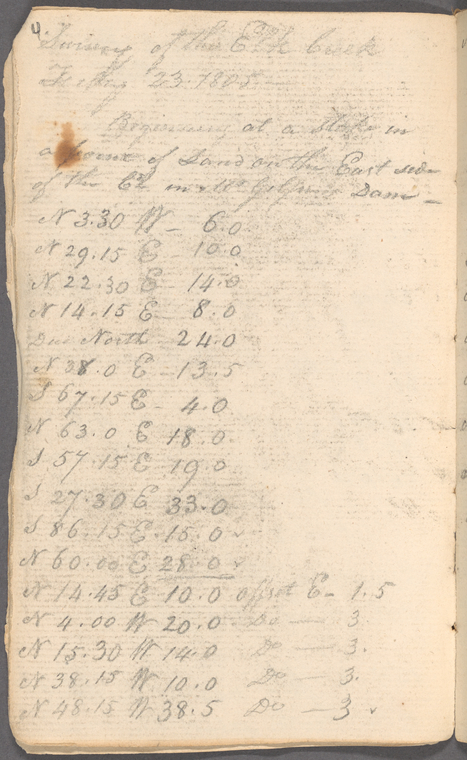 4.
Survey of the E. Creek
23 1805
Beginning at a Stake in
a point of Land on the East side
of the Ck in Mr Dam —
N 3.30 W - 6.0
N 29.15 E - 10.0
N 22.30 E - 14.0
N 14.15 E - 8.0
Due North - 24.0
N 38.0 E - 13.5
S 67.15 E - 4.0
N 63.0 E 18.0
S 57.15 E 19.0
S 27.30 E 33.0
S 86.15 E. 15.0
N 60.00 E 28.0
N 14.45 E 10.0 offset E - 1.5
N 4.00 W 20.0 Do — 3.
N 15.30 W 14.0 Do — 3.
N 38.15 W 10.0 Do — 3.
N 48.15 W 38.5 Do — 3